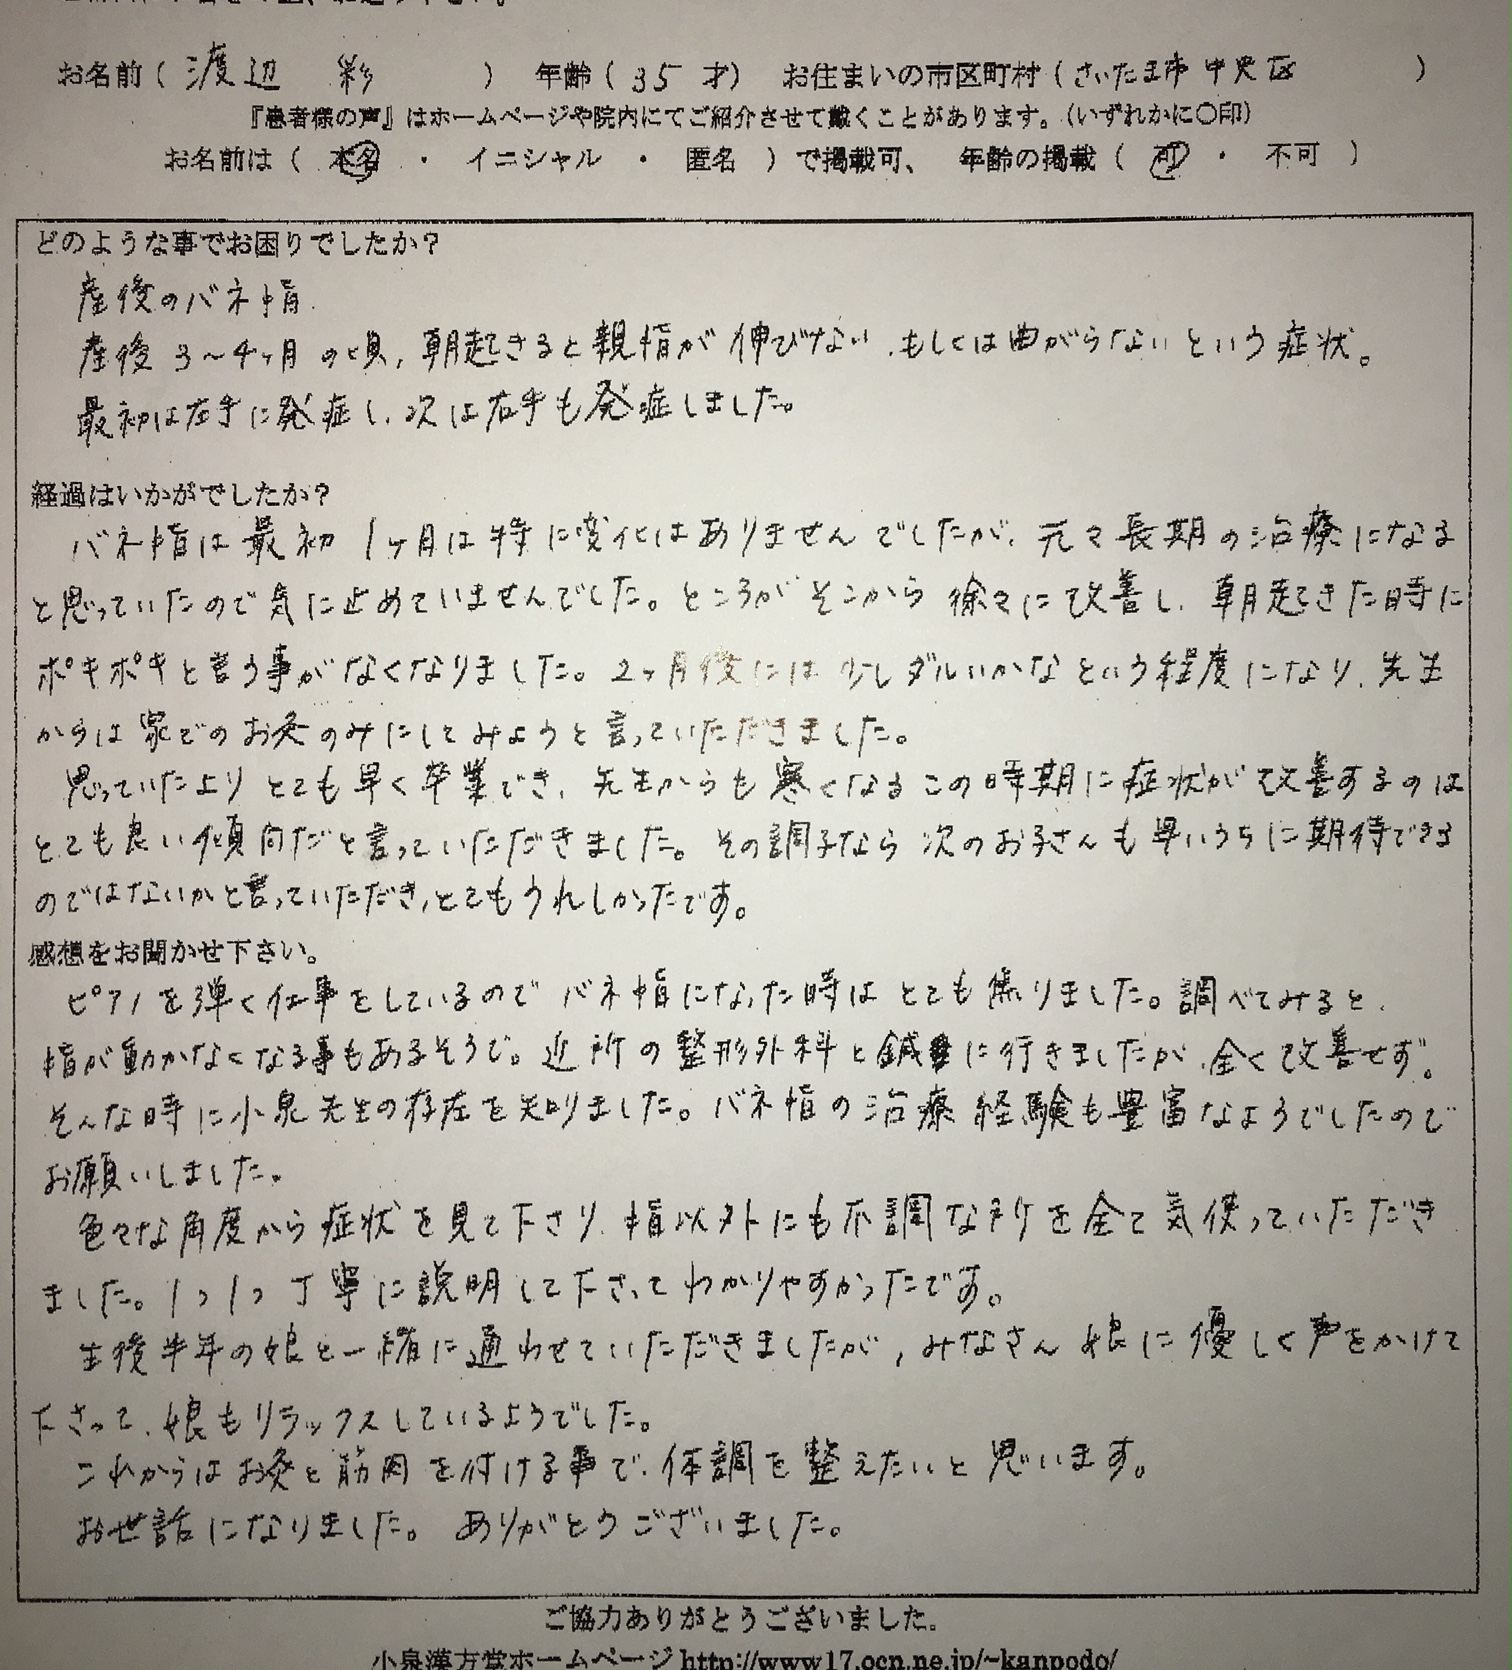 お名前（渡辺　彩　　　）　年齢（35才）　お住まいの市区町村（さいたま市中央区　　　）
『患者様の声』はホームページや院内にてご紹介させて戴くことがあります。（いずれかに〇印）
お名前は（　本名　・　イニシャル　・　匿名　）で掲載可、　年齢の掲載（　可　・　不可　）
どのような事でお困りでしたか？
産後のバネ指.
産後3〜4ヶ月の頃、朝起きると親指が伸びない、もしくは曲がらないという症状。
最初は左手に発症し、次は右手も発症しました。
経過はいかがでしたか？
バネ指は最初1ヶ月は特に変化はありませんでしたが、元々長期の治療になる
と思っていたので気に止めていませんでした。ところがそこから徐々に改善し、朝起きた時に
ポキポキと言う事がなくなりました。2ヶ月後には少しダルいかなという程度になり、先生
からは家でのお灸のみにしてみようと言っていただきました。
思っていたよりとても早く卒業でき、先生からも寒くなるこの時期に症状が改善するのは
とても良い傾向だと言っていただきました。その調子なら次のお子さんも早いうちに期待できる
のではないかと言っていただき、とてもうれしかったです。
感想をお聞かせ下さい。
ピアノを弾く仕事をしているのでバネ指になった時はとても焦りました。調べてみると、
指が動かなくなる事もあるそうで。近所の整形外科と鍼に行きましたが、全く改善せず。
そんな時に小泉先生の存在を知りました。バネ指の治療経験も豊富なようでしたので
お願いしました。
色々な角度から症状を見て下さり、指以外にも不調な所を全て気使っていただき
ました。1つ1つ丁寧に説明して下さってわかりやすかったです。
生後半年の娘と一緒に通わせていただきましたが、みなさん娘に優しく声をかけて
下さって、娘もリラックスしているようでした。
これからはお灸と筋肉を付ける事で、体調を整えたいと思います。
お世話になりました。ありがとうございました。
ご協力ありがとうございました。
小泉漢方堂ホームページ http://www17.ocn.ne.jp/~kanpodo/